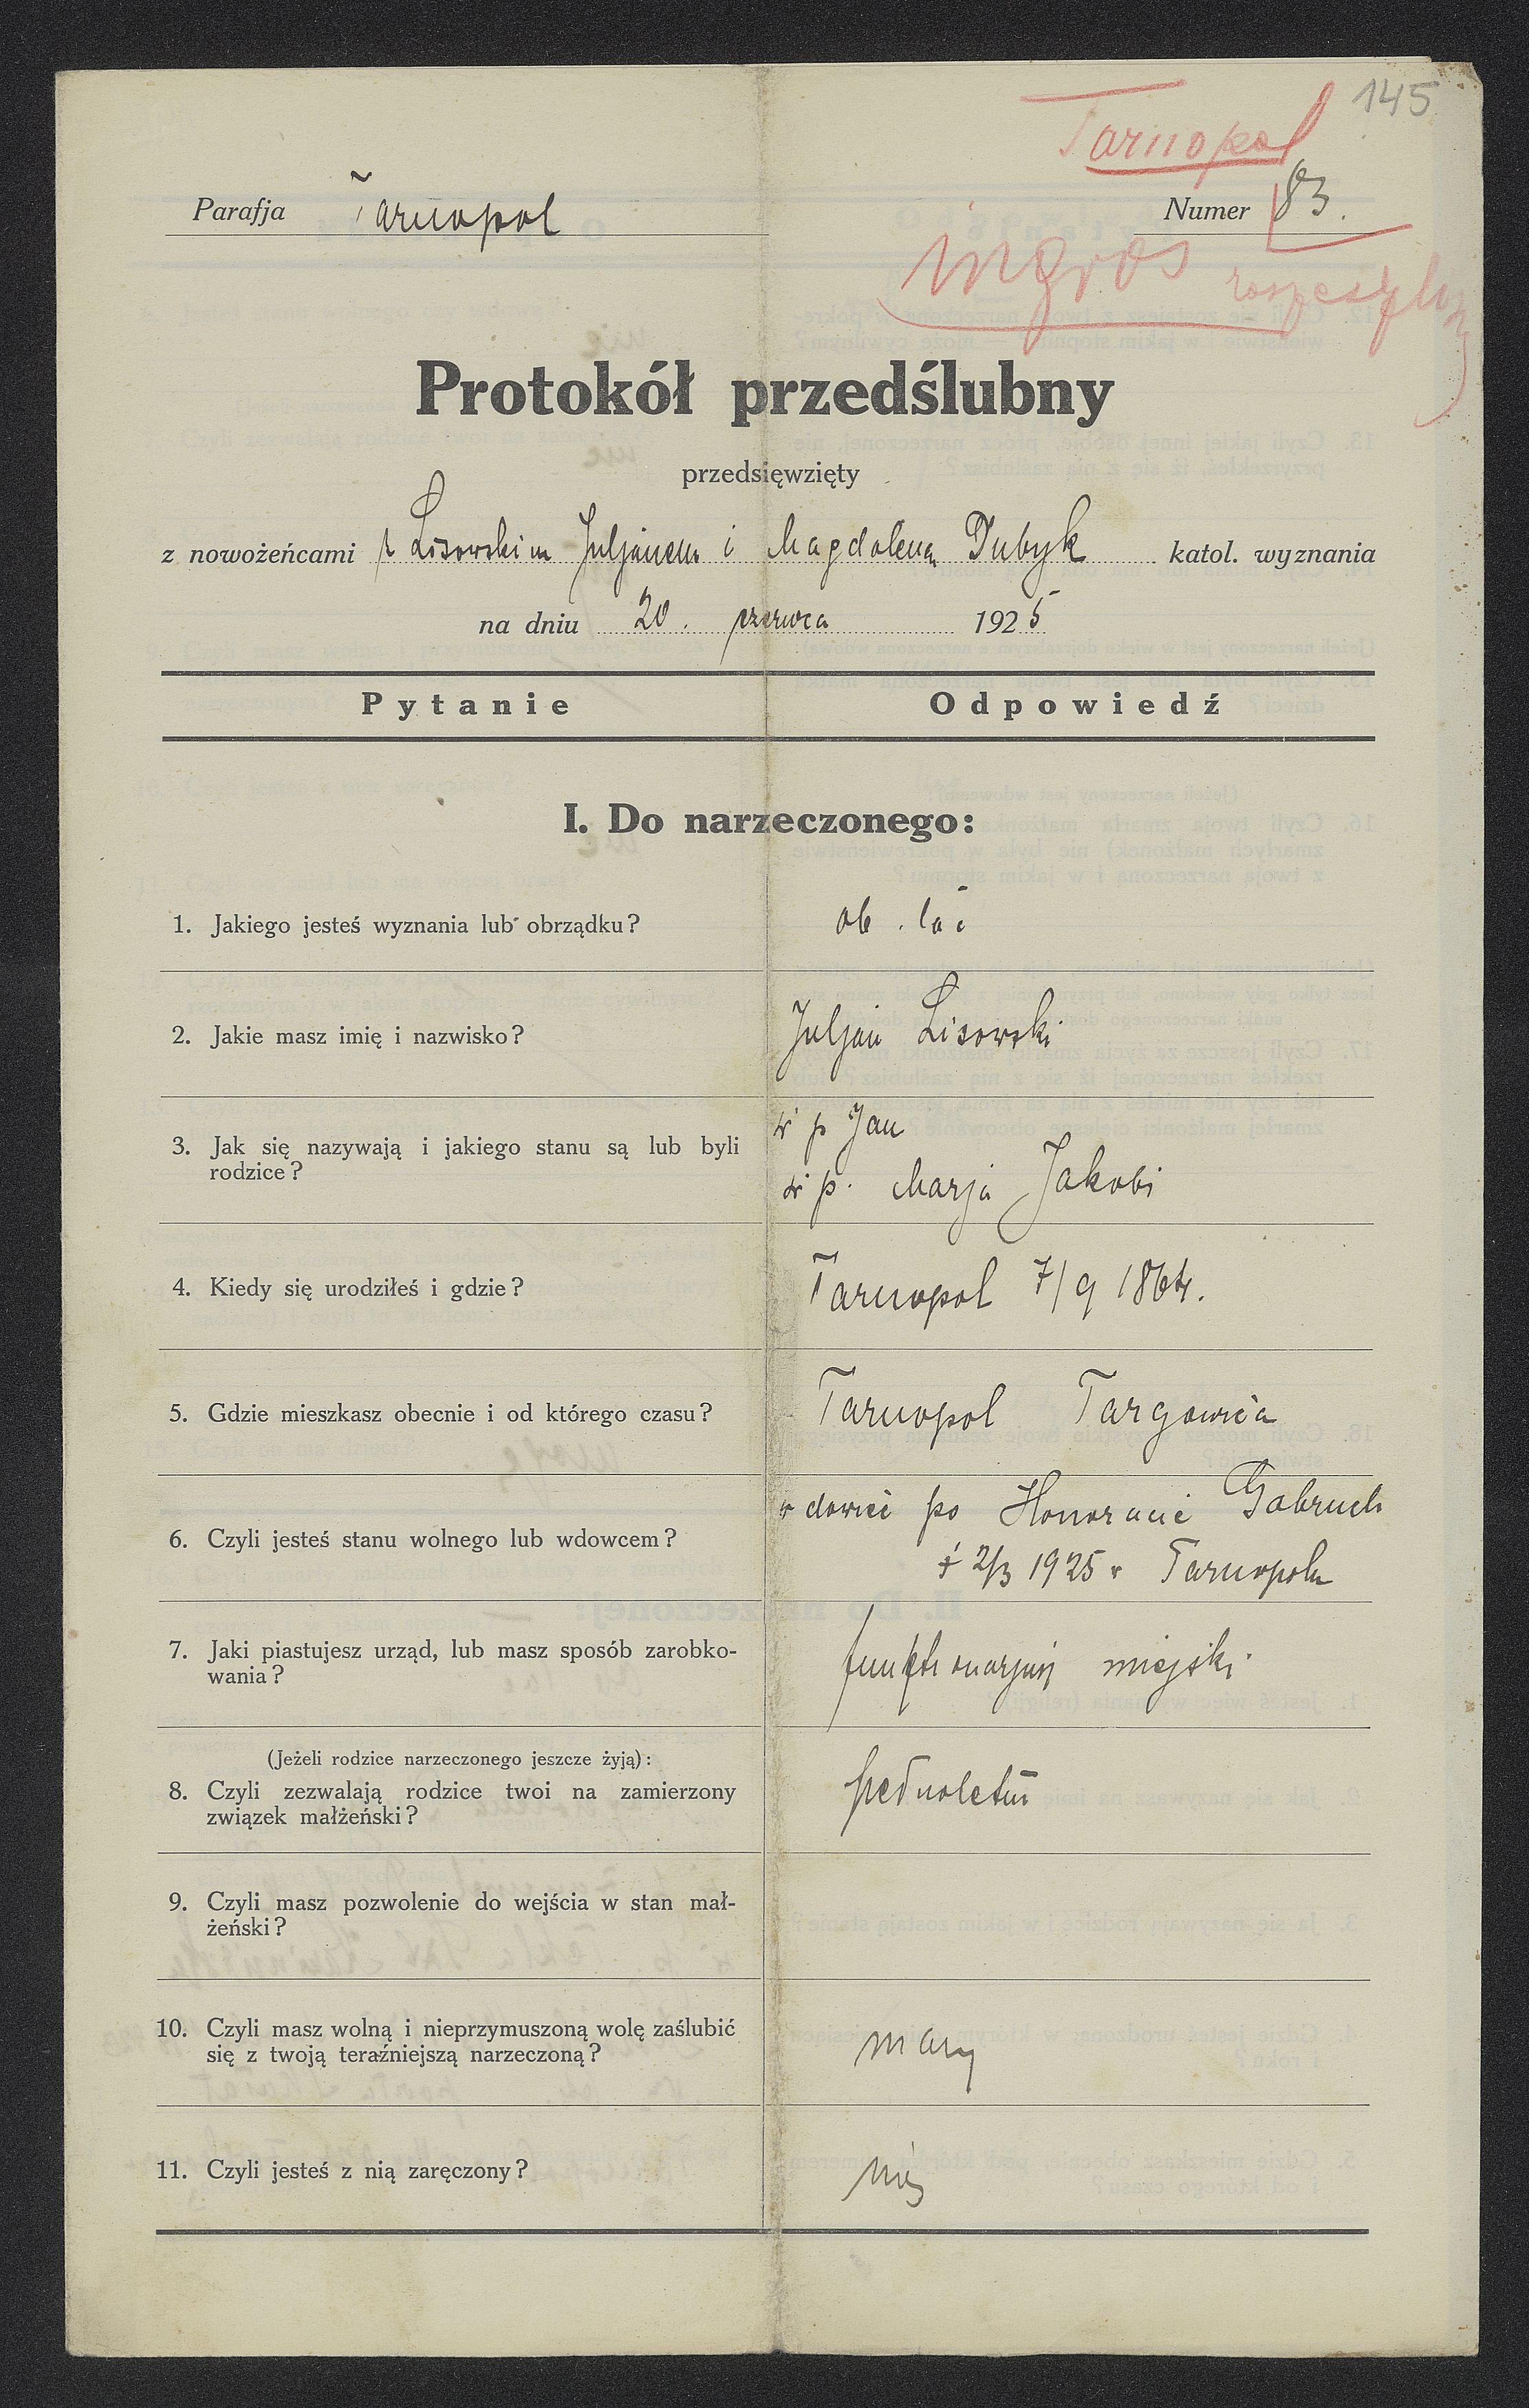 145
Tarnopol
Parafja Tarnopol
Numer 83.
ingros
Protokół przedślubny
przedsięwzięty
z nowożeńcami z Lisowskim Juljanem i Magdaleną Dubyk katol. wyznania
na dniu 20. czerwca 1925
Pytanie Odpowiedź
I. Do narzeczonego:
1. Jakiego jesteś wyznania lub obrządku?
ob. łać
2. Jakie masz imię i nazwisko?
Juljan Lisowski
3. Jak się nazywają i jakiego stanu są lub byli
rodzice?
ś p Jan
ś p. Marja Jakobi
4. Kiedy się urodziłeś i gdzie?
Tarnopol 7/9 1864.
5. Gdzie mieszkasz obecnie i od którego czasu?
Tarnopol Targowica
6. Czyli jesteś stanu wolnego lub wdowcem?
wdowiec po Honoracie
† 2/3 1925 w Tarnopolu
7. Jaki piastujesz urząd, lub masz sposób zarobko-
wania?
funkcjonarjusz miejski
(Jeżeli rodzice narzeczonego jeszcze żyją):
8. Czyli zezwalają rodzice twoi na zamierzony
związek małżeński?
pełnoletni
9. Czyli masz pozwolenie do wejścia w stan mał-
żeński?
10. Czyli masz wolną i nieprzymuszoną wolę zaślubić
się z twoją teraźniejszą narzeczoną?
mam
11. Czyli jesteś z nią zaręczony?
nie